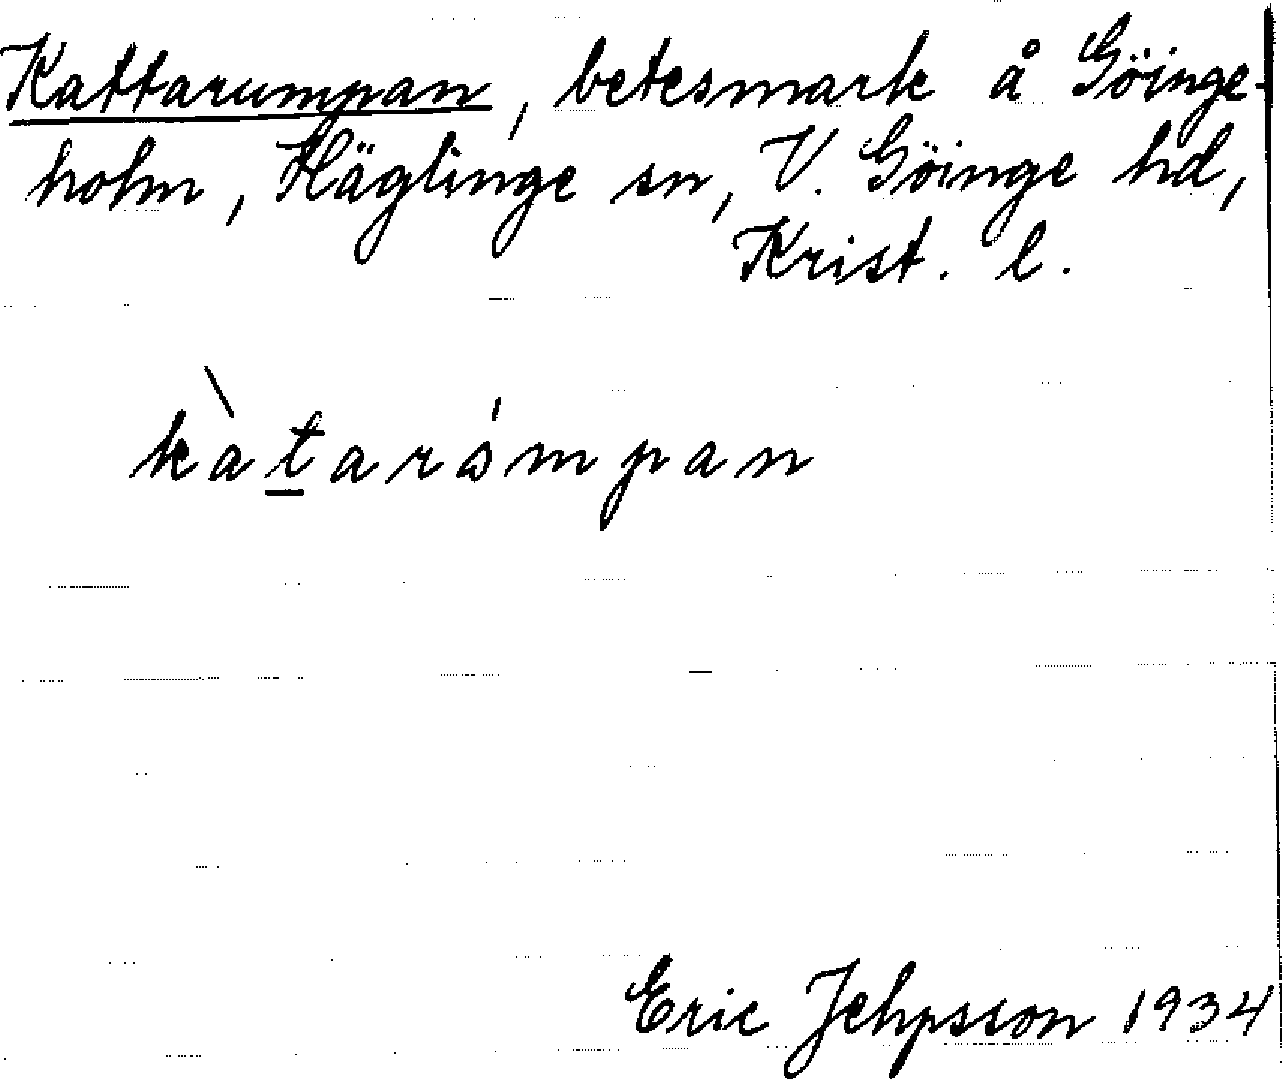 Kattarumpan, betesmark å Göinge-
holm, Häglinge sn, V. Göinge hd,
Krist. l.
kàtarómpan
Eric Jehpsson 1934